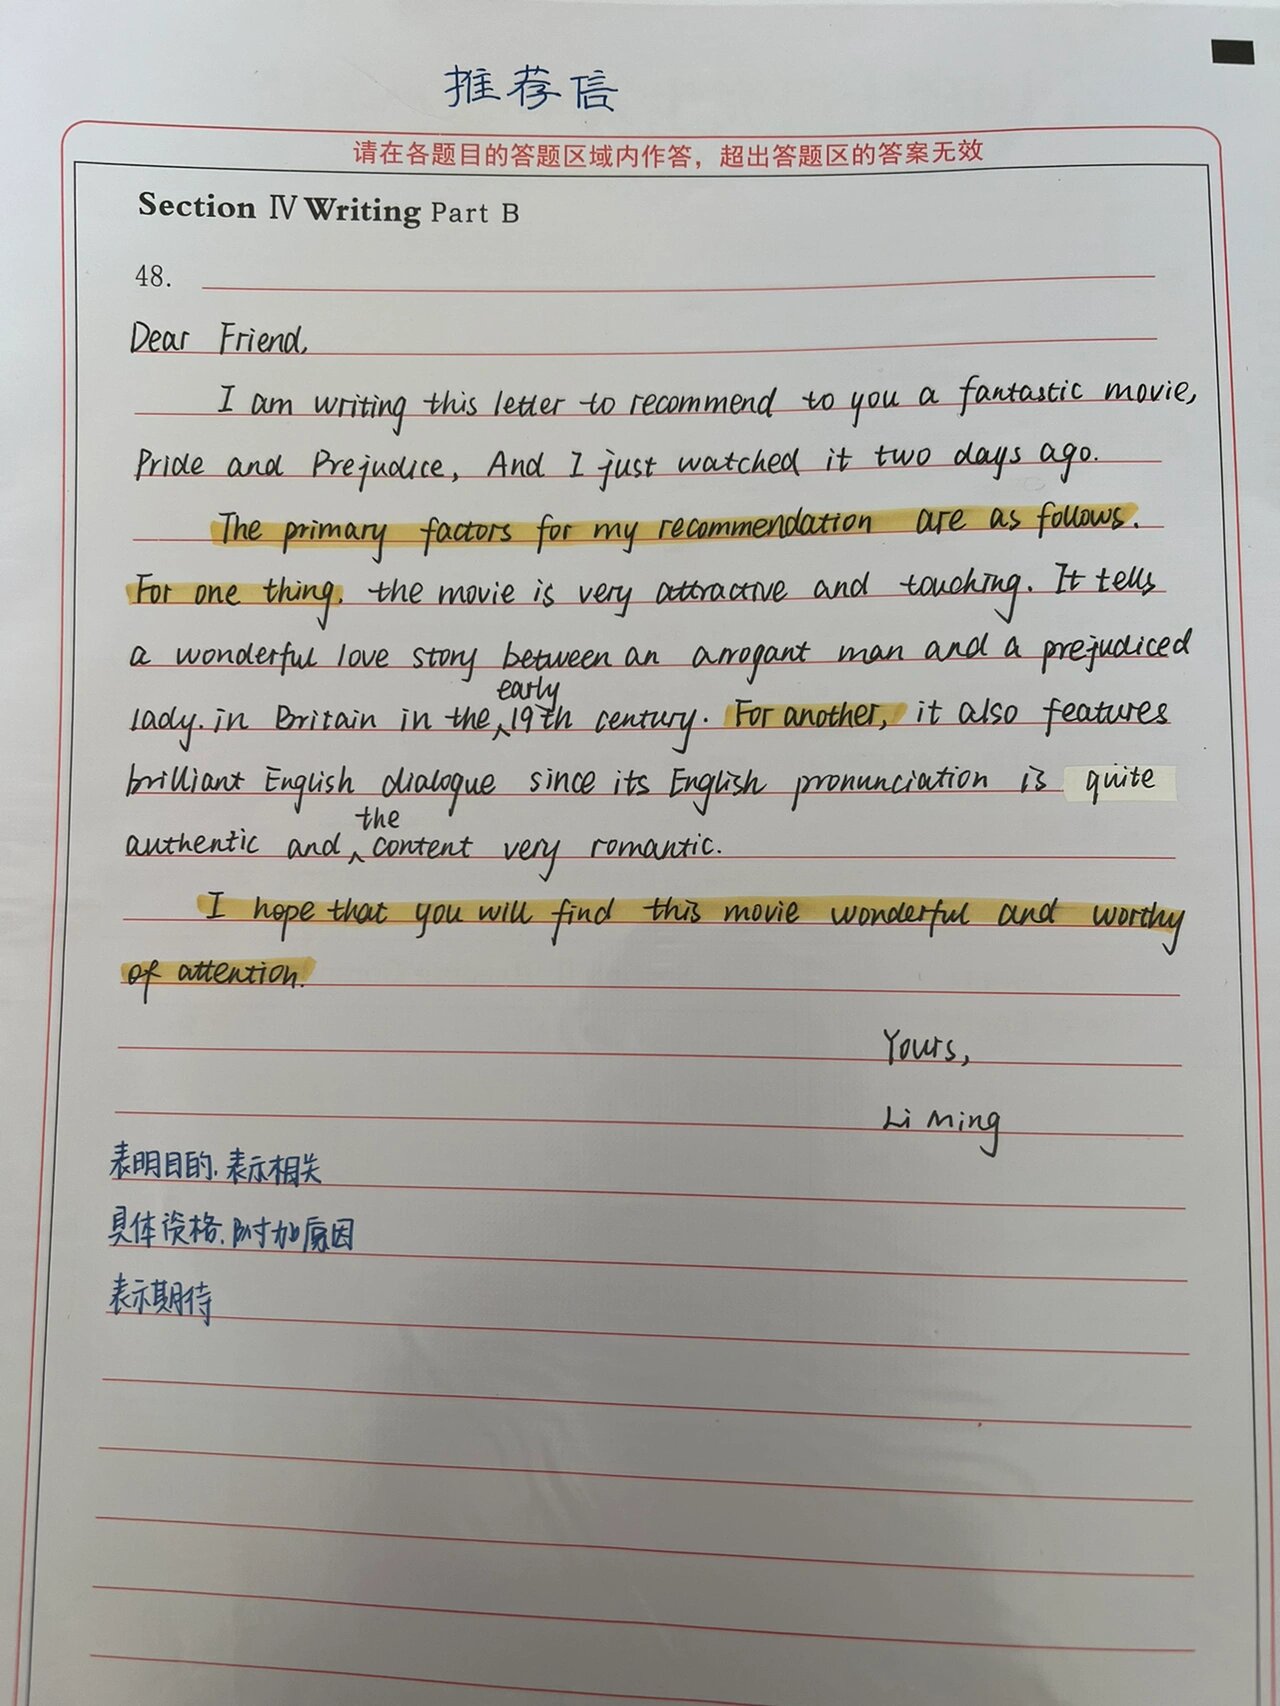 推荐信
请在各题目的答题区域内作答，超出答题区的答案无效
Section Ⅳ Writing Part B
48.
Dear Friend,
I am writing this letter to recommend to you a fantastic movie,
Pride and Prejudice, And I just watched it two days ago.
The primary factors for my recommendation are as follows.
For one thing, the movie is very attractive and touching. It tells
a wonderful love story between an arrogant man and a prejudiced
lady. in Britain in the early 19th century. For another, it also features
brilliant English dialogue since its English pronunciation is quite
authentic and the content very romantic.
I hope that you will find this movie wonderful and worthy
of attention.
Yours,
Li Ming
表明目的,表示相关
具体资格,附加原因
表示期待